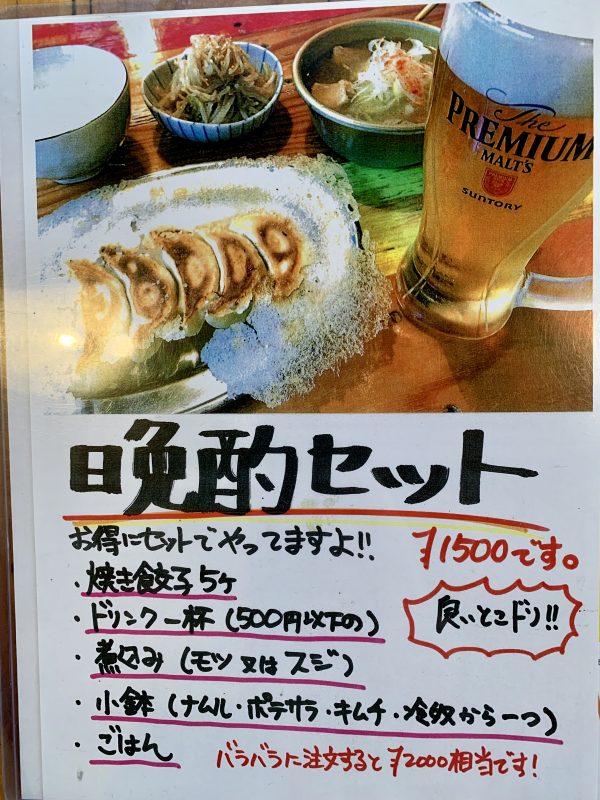 The
PREMIUM
MALT'S
SUNTORY
晩酌セット
お得にセットでやってますよ!! ¥1500です。
・焼き餃子5ヶ
・ドリンク一杯(500円以下の) 良いとこドリ!!
・煮込み(モツ又はスジ)
・小鉢(ナムル・ポテサラ・キムチ・冷奴から一つ)
・ごはん バラバラに注文すると¥2000相当です!